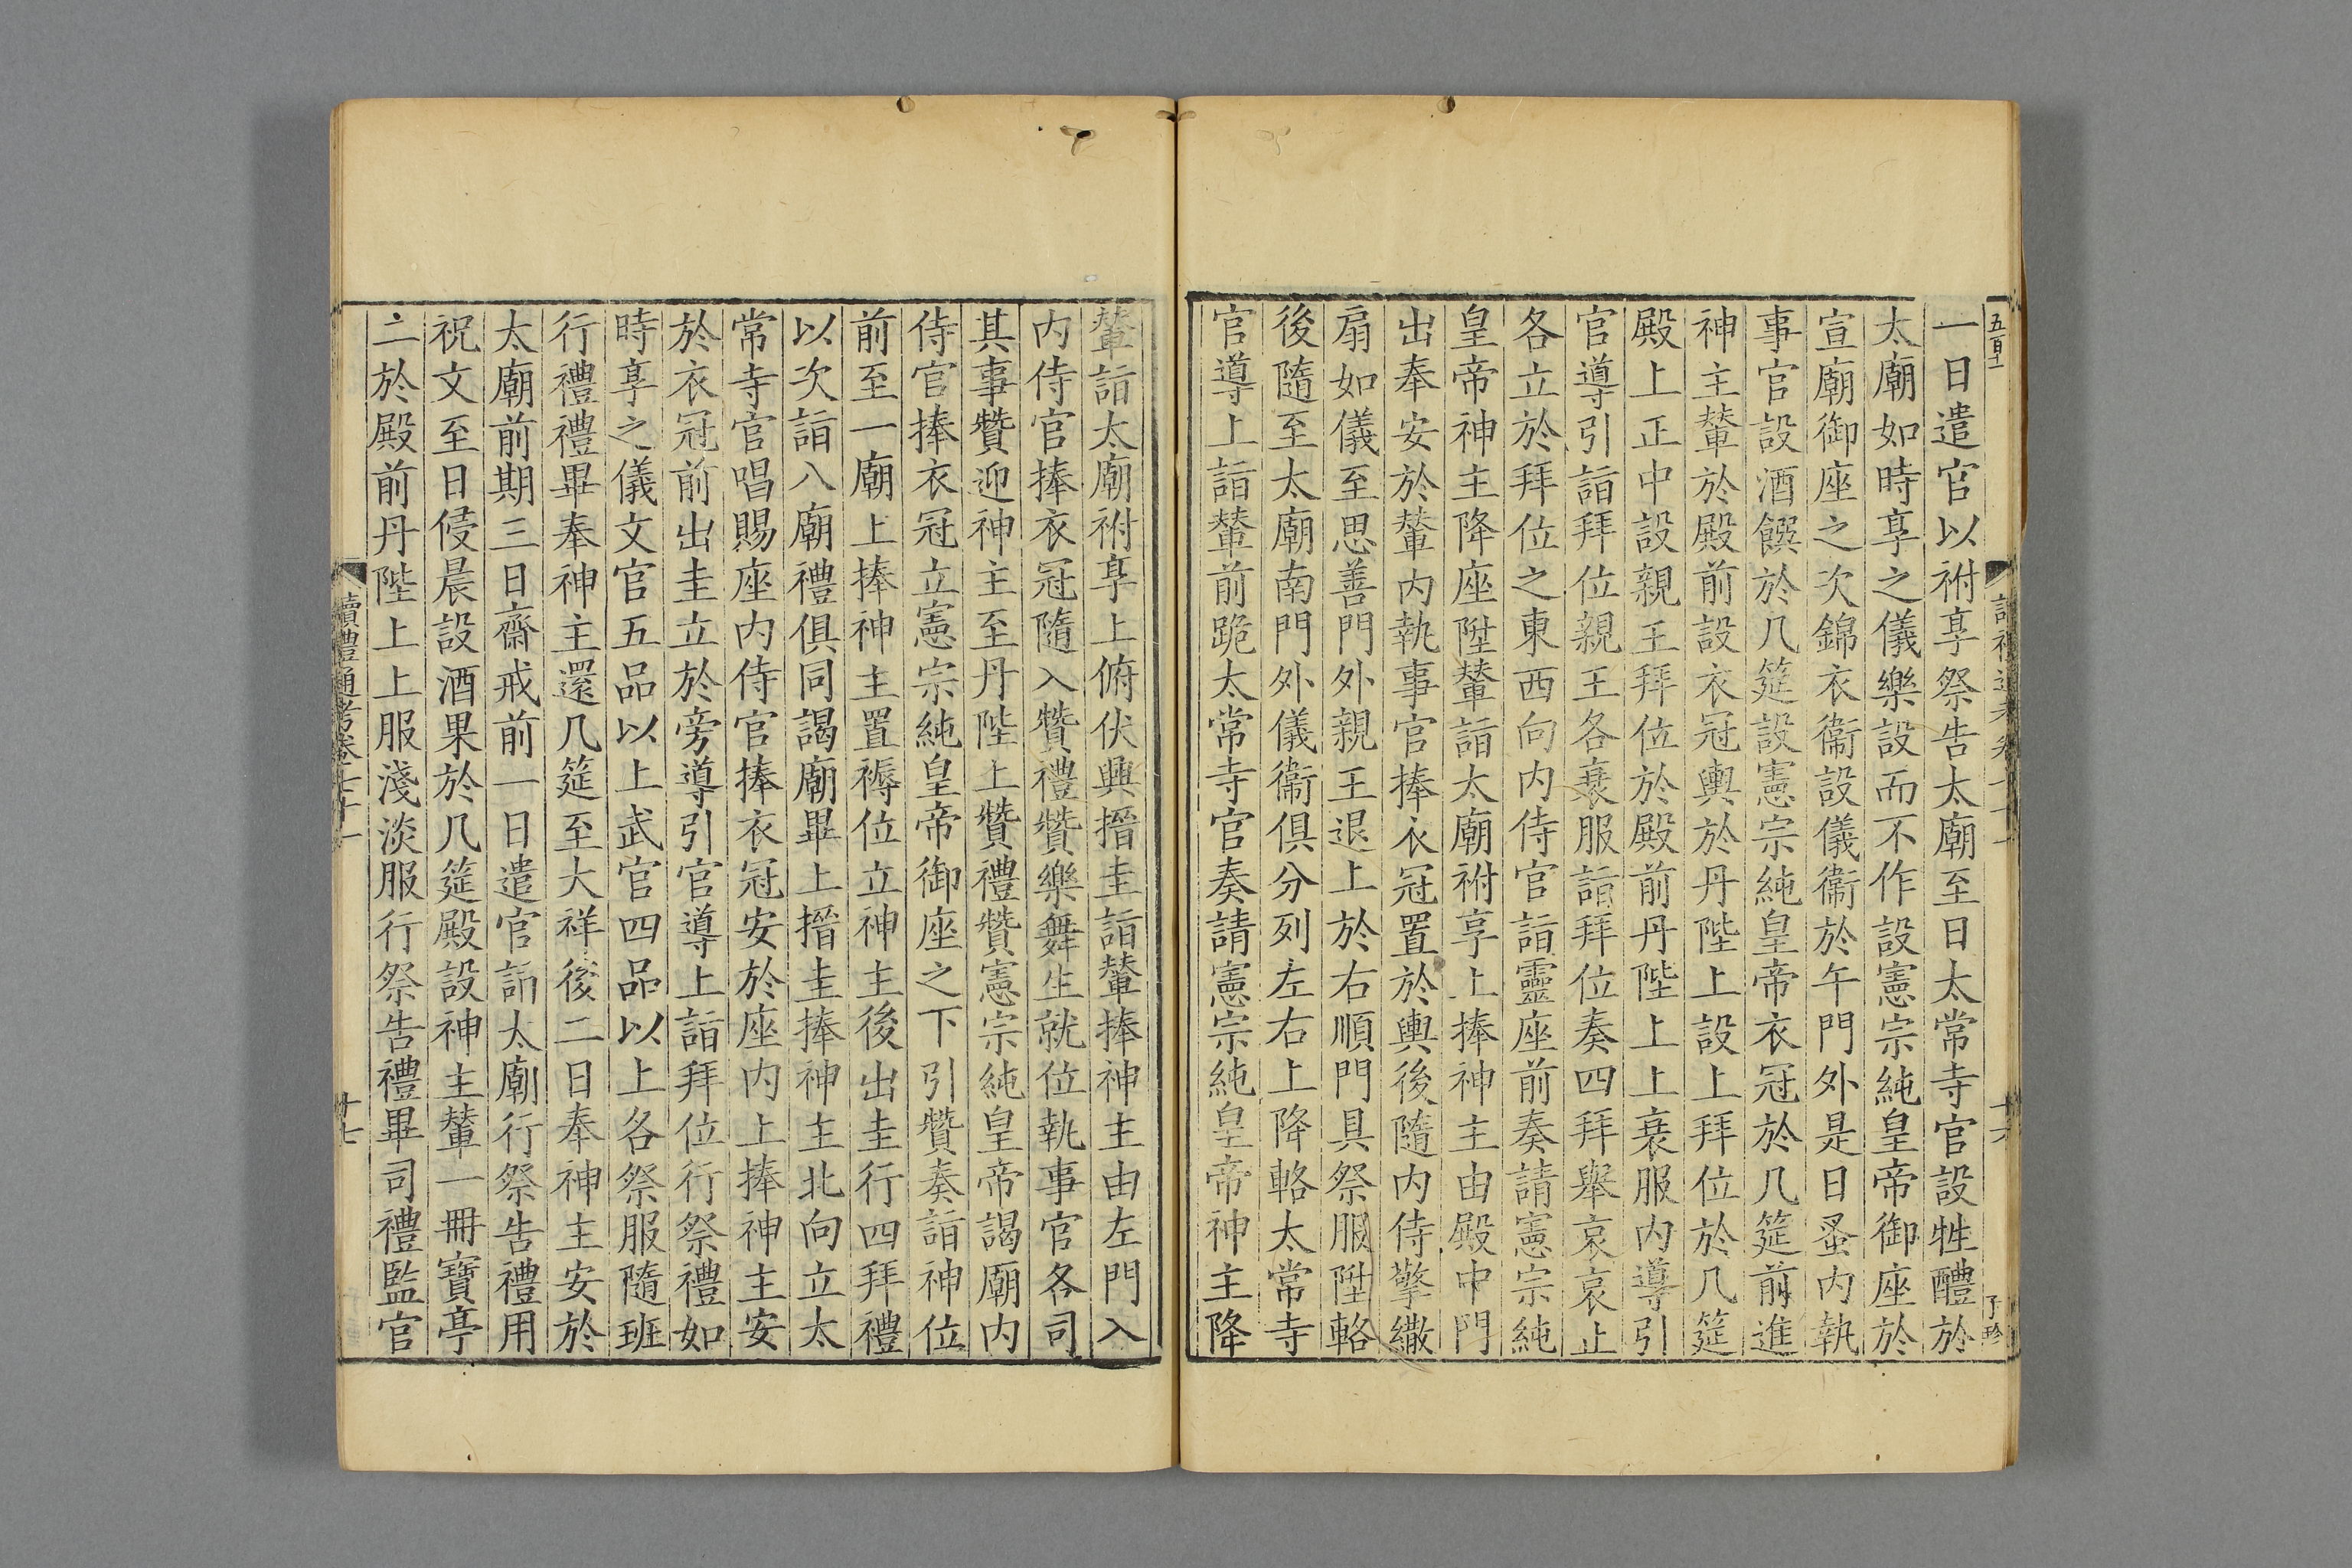 五百十一
一日遣官以祔享祭告太廟至日太常寺官設牲醴於
太廟如時享之儀樂設而不作設憲宗純皇帝御座於
宣廟御座之次錦衣衞設儀衞於午門外是日蚤内執
事官設酒饌於几筵設憲宗純皇帝衣冠於几筵前進
神主輦於殿前設衣冠輿於丹陛上設上拜位於几筵
殿上正中設親王拜位於殿前丹陛上上衰服内導引
官導引詣拜位親王各衰服詣拜位奏四拜舉哀哀止
各立於拜位之東西向内侍官詣靈座前奏請憲宗純
皇帝神主降座陞輦詣太廟祔享上捧神主由殿中門
出奉安於輦内執事官捧衣冠置於輿後隨内侍擎繖
扇如儀至思善門外親王退上於右順門具祭服陞輅
後隨至太廟南門外儀衞俱分列左右上降輅太常寺
官導上詣輦前跪太常寺官奏請憲宗純皇帝神主降
輦詣太廟祔享上俯伏興搢圭詣輦捧神主由左門入
内侍官捧衣冠隨入贊禮贊樂舞生就位執事官各司
其事贊迎神主至丹陛上贊禮贊憲宗純皇帝謁廟内
侍官捧衣冠立憲宗純皇帝御座之下引贊奏詣神位
前至一廟上捧神主置褥位立神主後出圭行四拜禮
以次詣八廟禮俱同謁廟畢上搢圭捧神主北向立太
常寺官唱賜座内侍官捧衣冠安於座内上捧神主安
於衣冠前出圭立於旁導引官導上詣拜位行祭禮如
時享之儀文官五品以上武官四品以上各祭服隨班
行禮禮畢奉神主還几筵至大祥後二日奉神主安於
太廟前期三日齋戒前一日遣官詣太廟行祭告禮用
祝文至日侵晨設酒果於几筵殿設神主輦一冊寶亭
二於殿前丹陛上上服淺淡服行祭告禮畢司禮監官
讀禮通考卷七十一
十七